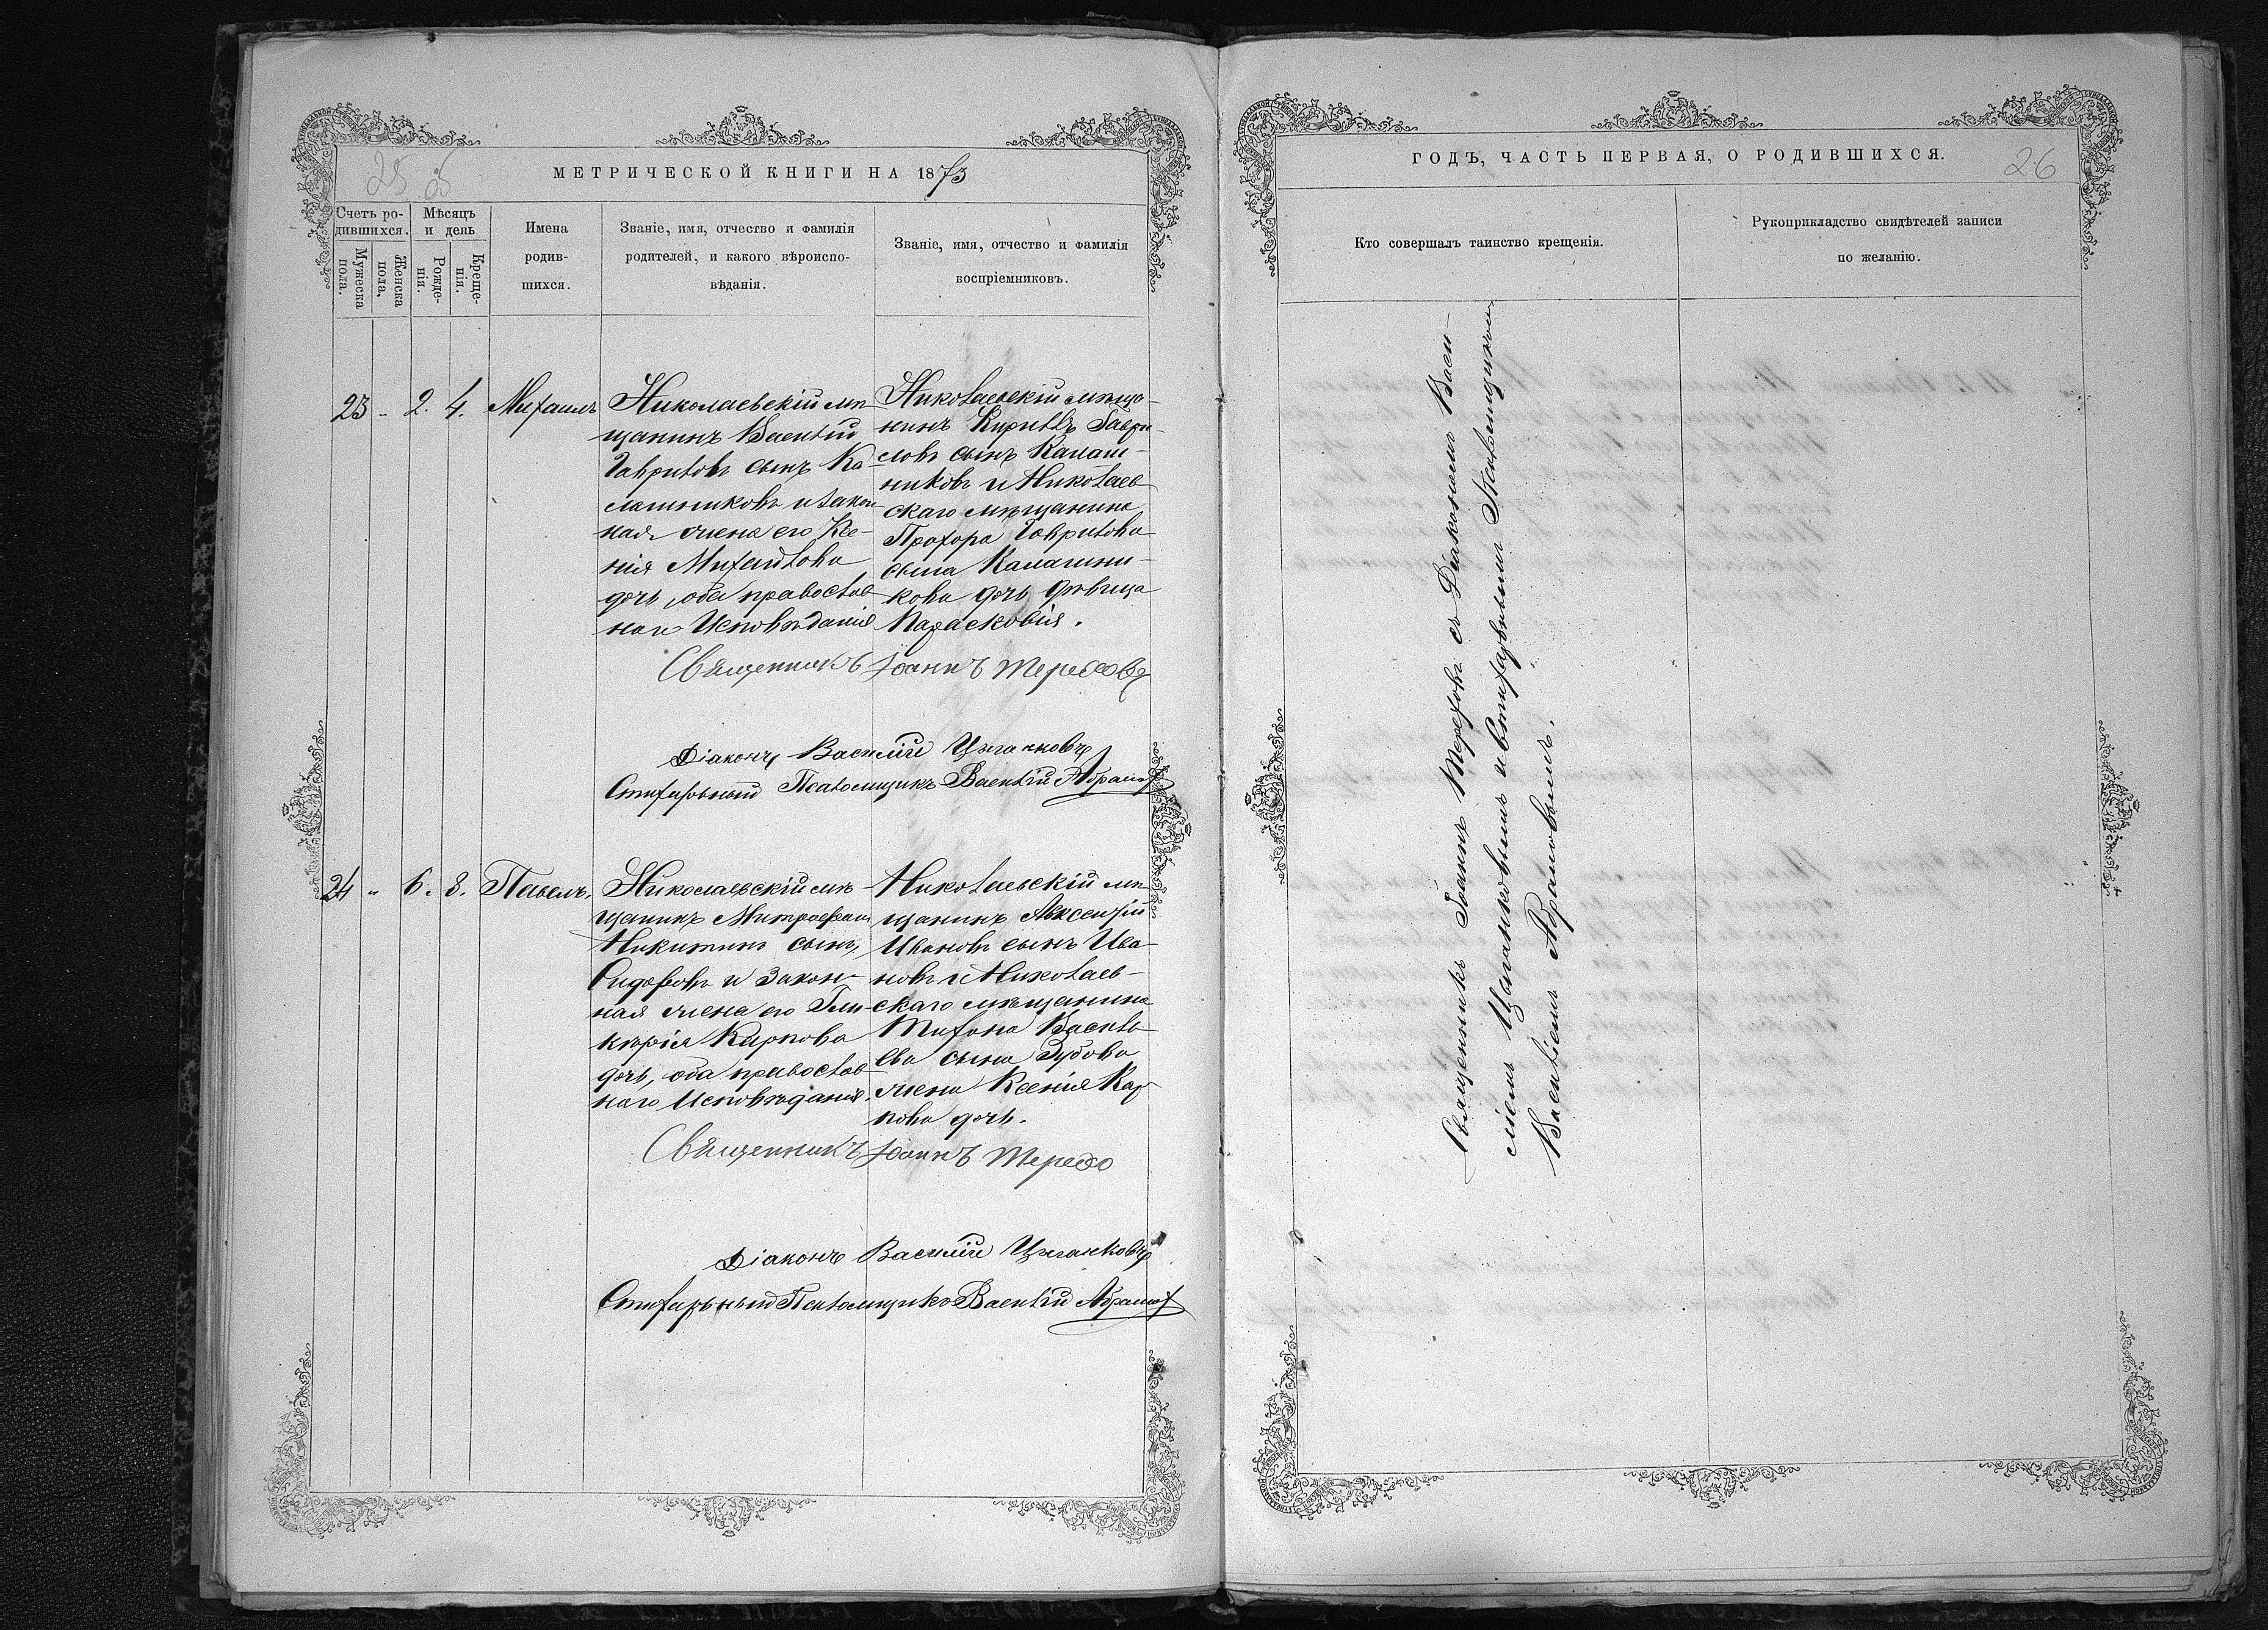 25
МЕТРИЧЕСКОЙ КНИГИ НА 1873
Счетъ ро-
дившихся.
Мужеска
пола.
Женска
пола.
Мѣсяцъ
и день
Рожде-
нія.
Креще-
нія.
Имена
родив-
шихся.
Званіе, имя, отчество и фамилія
родителей, и какого вѣроиспо-
вѣданія.
Званіе, имя, отчество и фамилія
воспріемниковъ.
23 - 2. 4. Михаилъ
Николаевскій мѣ-
щанинъ Василій
Гавриловъ сынъ Ка-
лашниковъ и закон
ная жена его Ксе-
нія Михаилова
дочь, оба православ
наго Исповѣданія
Николаевскій мѣща-
нинъ Кирилъ Гаври-
ловъ сынъ Калаш-
никовъ и Николаев
скаго мѣщанина
Прохора Гаврилова
сына Калашни-
кова дочь дѣвица
Парасковія.
Священникъ Іоаннъ Тереховъ
Діаконъ Василій Цыганковъ
Стихарьный Псаломщикъ Василій Абрамов
24 " 6. 8. Павелъ.
Николаевскій мѣ-
щанинъ Митрофанъ
Никитинъ сынъ,
Сидоровъ и Закон-
ная жена его Гли-
керія Карпова
дочь, оба православ
наго Исповѣданія.
Николаевскій мѣ
щанинъ Авксентій
Ивановъ сынъ Ива-
новъ и Николаев-
скаго мѣщанина
Тихона Василь-
ева сына Зубова
жена Ксенія Кар-
пова дочь.
Священникъ Іоаннъ Терехо
Діаконъ Василій Цыганковъ
Стихарьный Псаломщикъ Василій Абрамов
ГОДЪ, ЧАСТЬ ПЕРВАЯ, О РОДИВШИХСЯ.
26
Кто совершалъ таинство крещенія.
Рукоприкладство свидѣтелей записи
по желанію.
Священникъ Іоаннъ Тереховъ съ Діакономъ Васи-
ліемъ Цыганковымъ и Стихарьнымъ Псаломщикомъ
Василіемъ Абрамовымъ.